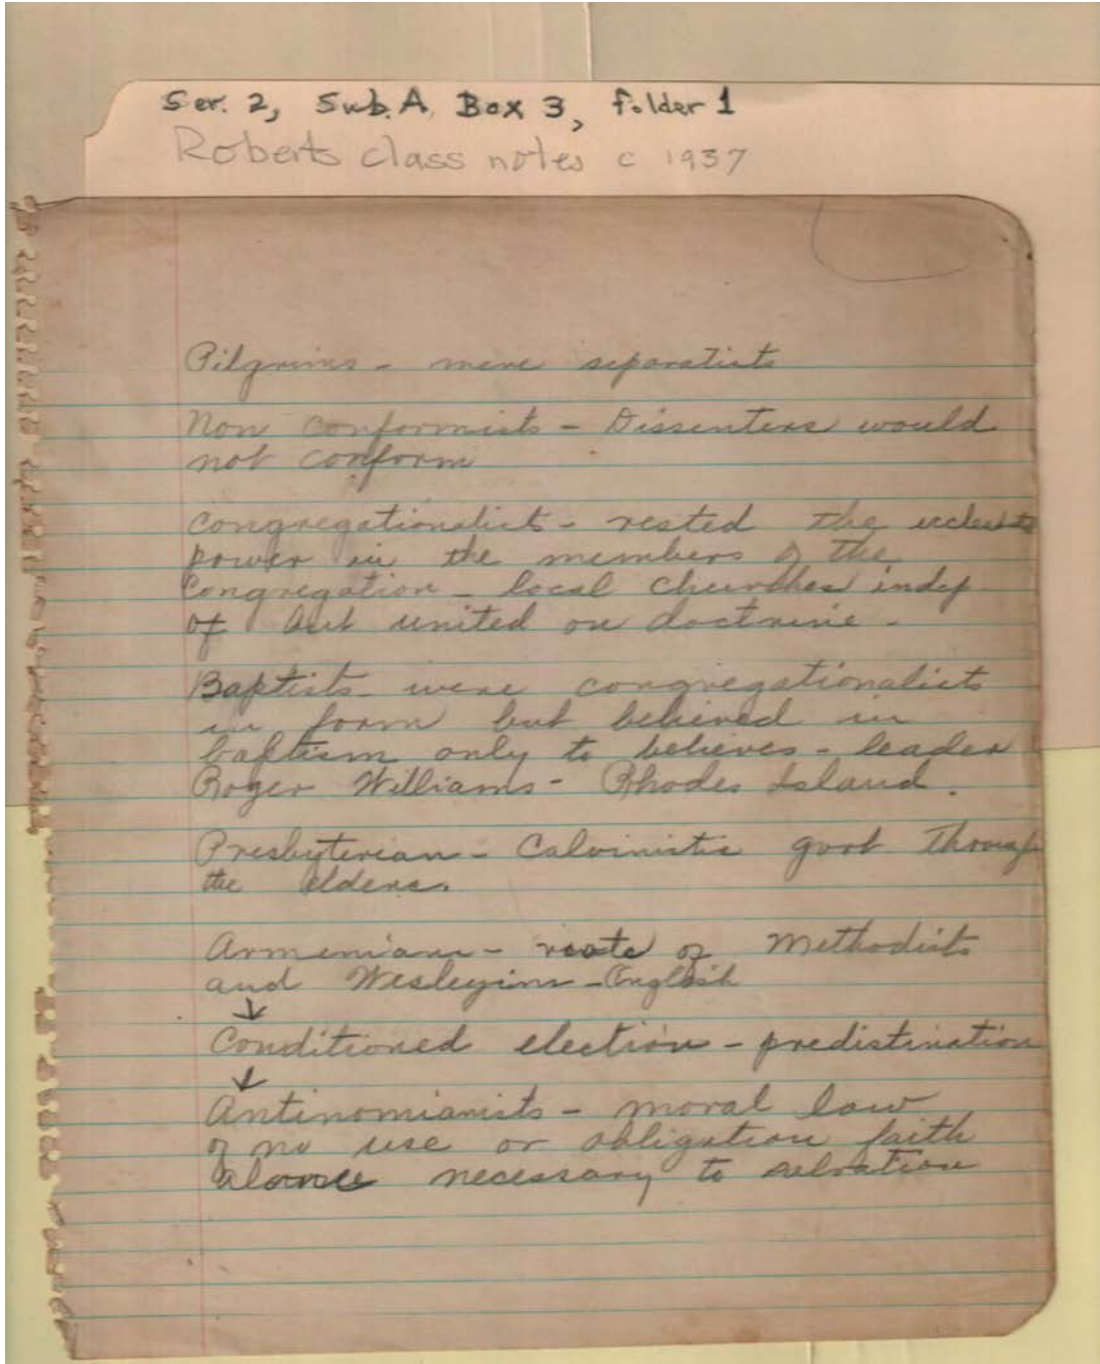 Ser. 2, Sub. A. Box 3, folder 1
Roberts class notes c 1937
Pilgrims - mere separatists
Non conformists - Dissenters would
not conform
Congregationalists - rested the
power in the members of the
Congregation - local churches indep
of but united on doctrine -
Baptists - were congregationalists
in form but believed in
baptism only to believes - leader
Roger Williams - Rhodes Island.
Presbyterian - Calvinistic govt through
the elders.
Armenians - roots of Methodists
and Wesleyins - English
↓
Conditioned election - predistination
↓
Antinomianists - moral law
of no use or obligation faith
alone necessary to salvation